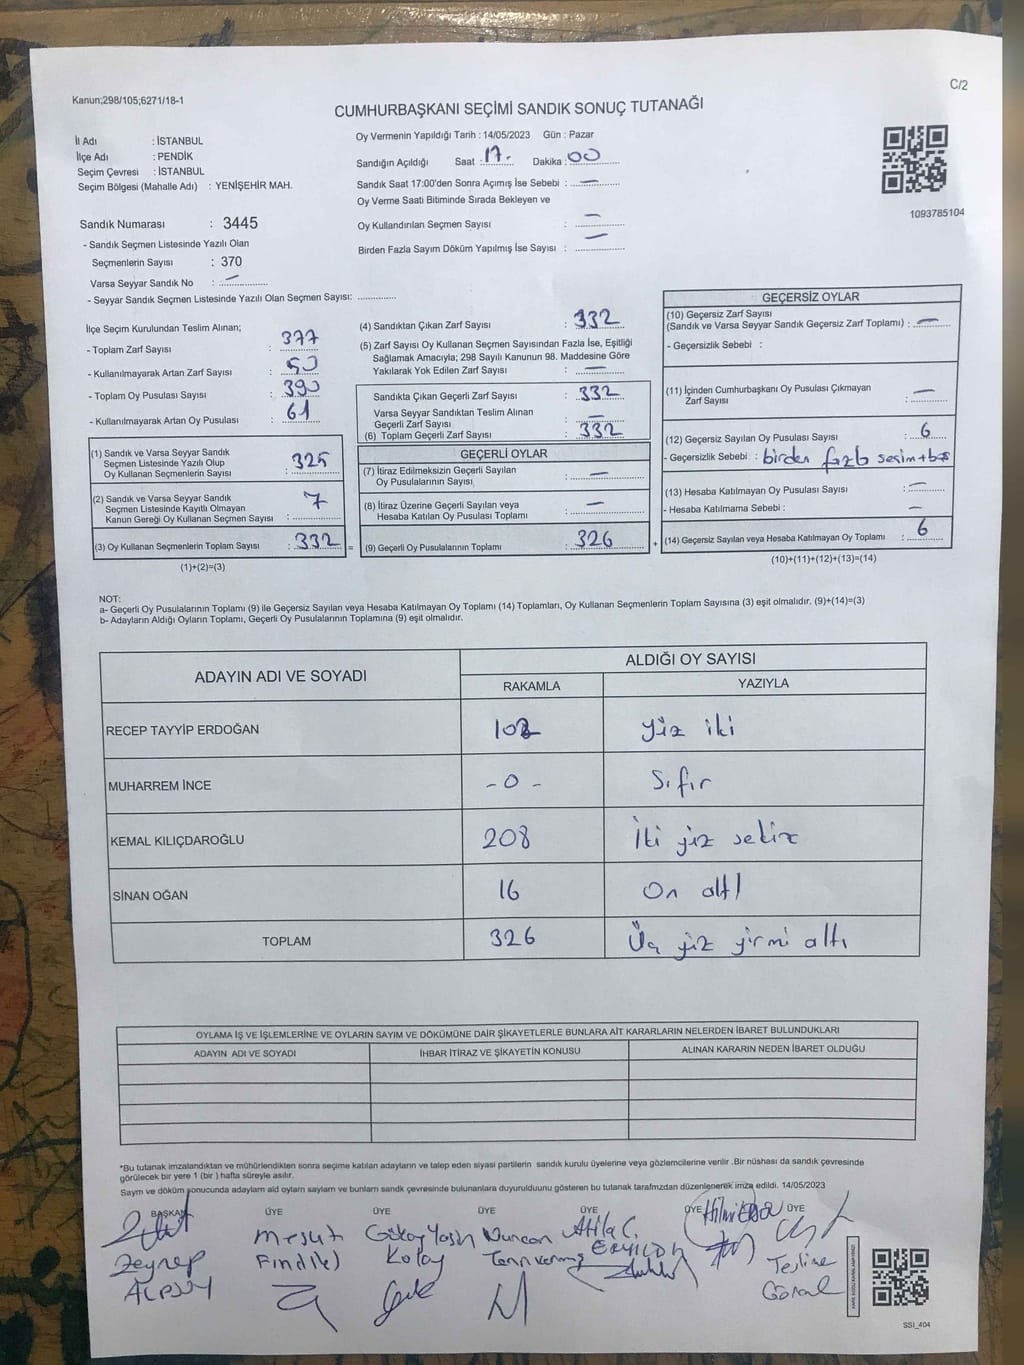 Kanun;298/105;6271/18-1
C/2
CUMHURBAŞKANI SEÇİMİ SANDIK SONUÇ TUTANAĞI
İl Adı : İSTANBUL
İlçe Adı : PENDİK
Seçim Çevresi : İSTANBUL
Seçim Bölgesi (Mahalle Adı) : YENİŞEHİR MAH.
Oy Vermenin Yapıldığı Tarih : 14/05/2023 Gün : Pazar
Sandığın Açıldığı Saat : 17. Dakika : 00
Sandık Saat 17:00'den Sonra Açımış İse Sebebi : —
Oy Verme Saati Bitiminde Sırada Bekleyen ve
Oy Kullandırılan Seçmen Sayısı : —
Birden Fazla Sayım Döküm Yapılmış İse Sayısı : —
1093785104
Sandık Numarası : 3445
- Sandık Seçmen Listesinde Yazılı Olan
Seçmenlerin Sayısı : 370
Varsa Seyyar Sandık No : —
- Seyyar Sandık Seçmen Listesinde Yazılı Olan Seçmen Sayısı:
İlçe Seçim Kurulundan Teslim Alınan;
- Toplam Zarf Sayısı : 377
- Kullanılmayarak Artan Zarf Sayısı : 50
- Toplam Oy Pusulası Sayısı : 390
- Kullanılmayarak Artan Oy Pusulası : 61
(1) Sandık ve Varsa Seyyar Sandık
Seçmen Listesinde Yazılı Olup
Oy Kullanan Seçmenlerin Sayısı : 325
(2) Sandık ve Varsa Seyyar Sandık
Seçmen Listesinde Kayıtlı Olmayan
Kanun Gereği Oy Kullanan Seçmen Sayısı : 7
(3) Oy Kullanan Seçmenlerin Toplam Sayısı : 332 =
(1)+(2)=(3)
(4) Sandıktan Çıkan Zarf Sayısı : 332
(5) Zarf Sayısı Oy Kullanan Seçmen Sayısından Fazla İse, Eşitliği
Sağlamak Amacıyla; 298 Sayılı Kanunun 98. Maddesine Göre
Yakılarak Yok Edilen Zarf Sayısı : —
Sandıkta Çıkan Geçerli Zarf Sayısı : 332
Varsa Seyyar Sandıktan Teslim Alınan
Geçerli Zarf Sayısı : —
(6) Toplam Geçerli Zarf Sayısı : 332
GEÇERLİ OYLAR
(7) İtiraz Edilmeksizin Geçerli Sayılan
Oy Pusulalarının Sayısı : —
(8) İtiraz Üzerine Geçerli Sayılan veya
Hesaba Katılan Oy Pusulası Toplamı : —
(9) Geçerli Oy Pusulalarının Toplamı : 326 +
GEÇERSİZ OYLAR
(10) Geçersiz Zarf Sayısı
(Sandık ve Varsa Seyyar Sandık Geçersiz Zarf Toplamı) : —
- Geçersizlik Sebebi :
(11) İçinden Cumhurbaşkanı Oy Pusulası Çıkmayan
Zarf Sayısı : —
(12) Geçersiz Sayılan Oy Pusulası Sayısı : 6
- Geçersizlik Sebebi : birden fazla
(13) Hesaba Katılmayan Oy Pusulası Sayısı : —
- Hesaba Katılmama Sebebi : —
(14) Geçersiz Sayılan veya Hesaba Katılmayan Oy Toplamı : 6
(10)+(11)+(12)+(13)=(14)
NOT:
a- Geçerli Oy Pusulalarının Toplamı (9) ile Geçersiz Sayılan veya Hesaba Katılmayan Oy Toplamı (14) Toplamları, Oy Kullanan Seçmenlerin Toplam Sayısına (3) eşit olmalıdır. (9)+(14)=(3)
b- Adayların Aldığı Oyların Toplamı, Geçerli Oy Pusulalarının Toplamına (9) eşit olmalıdır.
ADAYIN ADI VE SOYADI ALDIĞI OY SAYISI
RAKAMLA YAZIYLA
RECEP TAYYİP ERDOĞAN 102 yüz iki
MUHARREM İNCE -0- Sıfır
KEMAL KILIÇDAROĞLU 208 İki yüz sekiz
SİNAN OĞAN 16 On altı
TOPLAM 326 Üç yüz yirmi altı
OYLAMA İŞ VE İŞLEMLERİNE VE OYLARIN SAYIM VE DÖKÜMÜNE DAİR ŞİKAYETLERLE BUNLARA AİT KARARLARIN NELERDEN İBARET BULUNDUKLARI
ADAYIN ADI VE SOYADI İHBAR İTİRAZ VE ŞİKAYETİN KONUSU ALINAN KARARIN NEDEN İBARET OLDUĞU
*Bu tutanak imzalandıktan ve mühürlendikten sonra seçime katılan adayların ve talep eden siyasi partilerin sandık kurulu üyelerine veya gözlemcilerine verilir .Bir nüshası da sandık çevresinde
görülecek bir yere 1 (bir ) hafta süreyle asılır.
Sayım ve döküm sonucunda adayların aid oyların sayıların ve bunların sandık çevresinde bulunanlara duyurulduunu gösteren bu tutanak tarafımızdan düzenlenerek imza edildi. 14/05/2023
BAŞKAN ÜYE ÜYE ÜYE ÜYE ÜYE ÜYE
Mesut Gökay Yasin Nurcan Attila Ç.
Zeynep Kolay
SSI_404